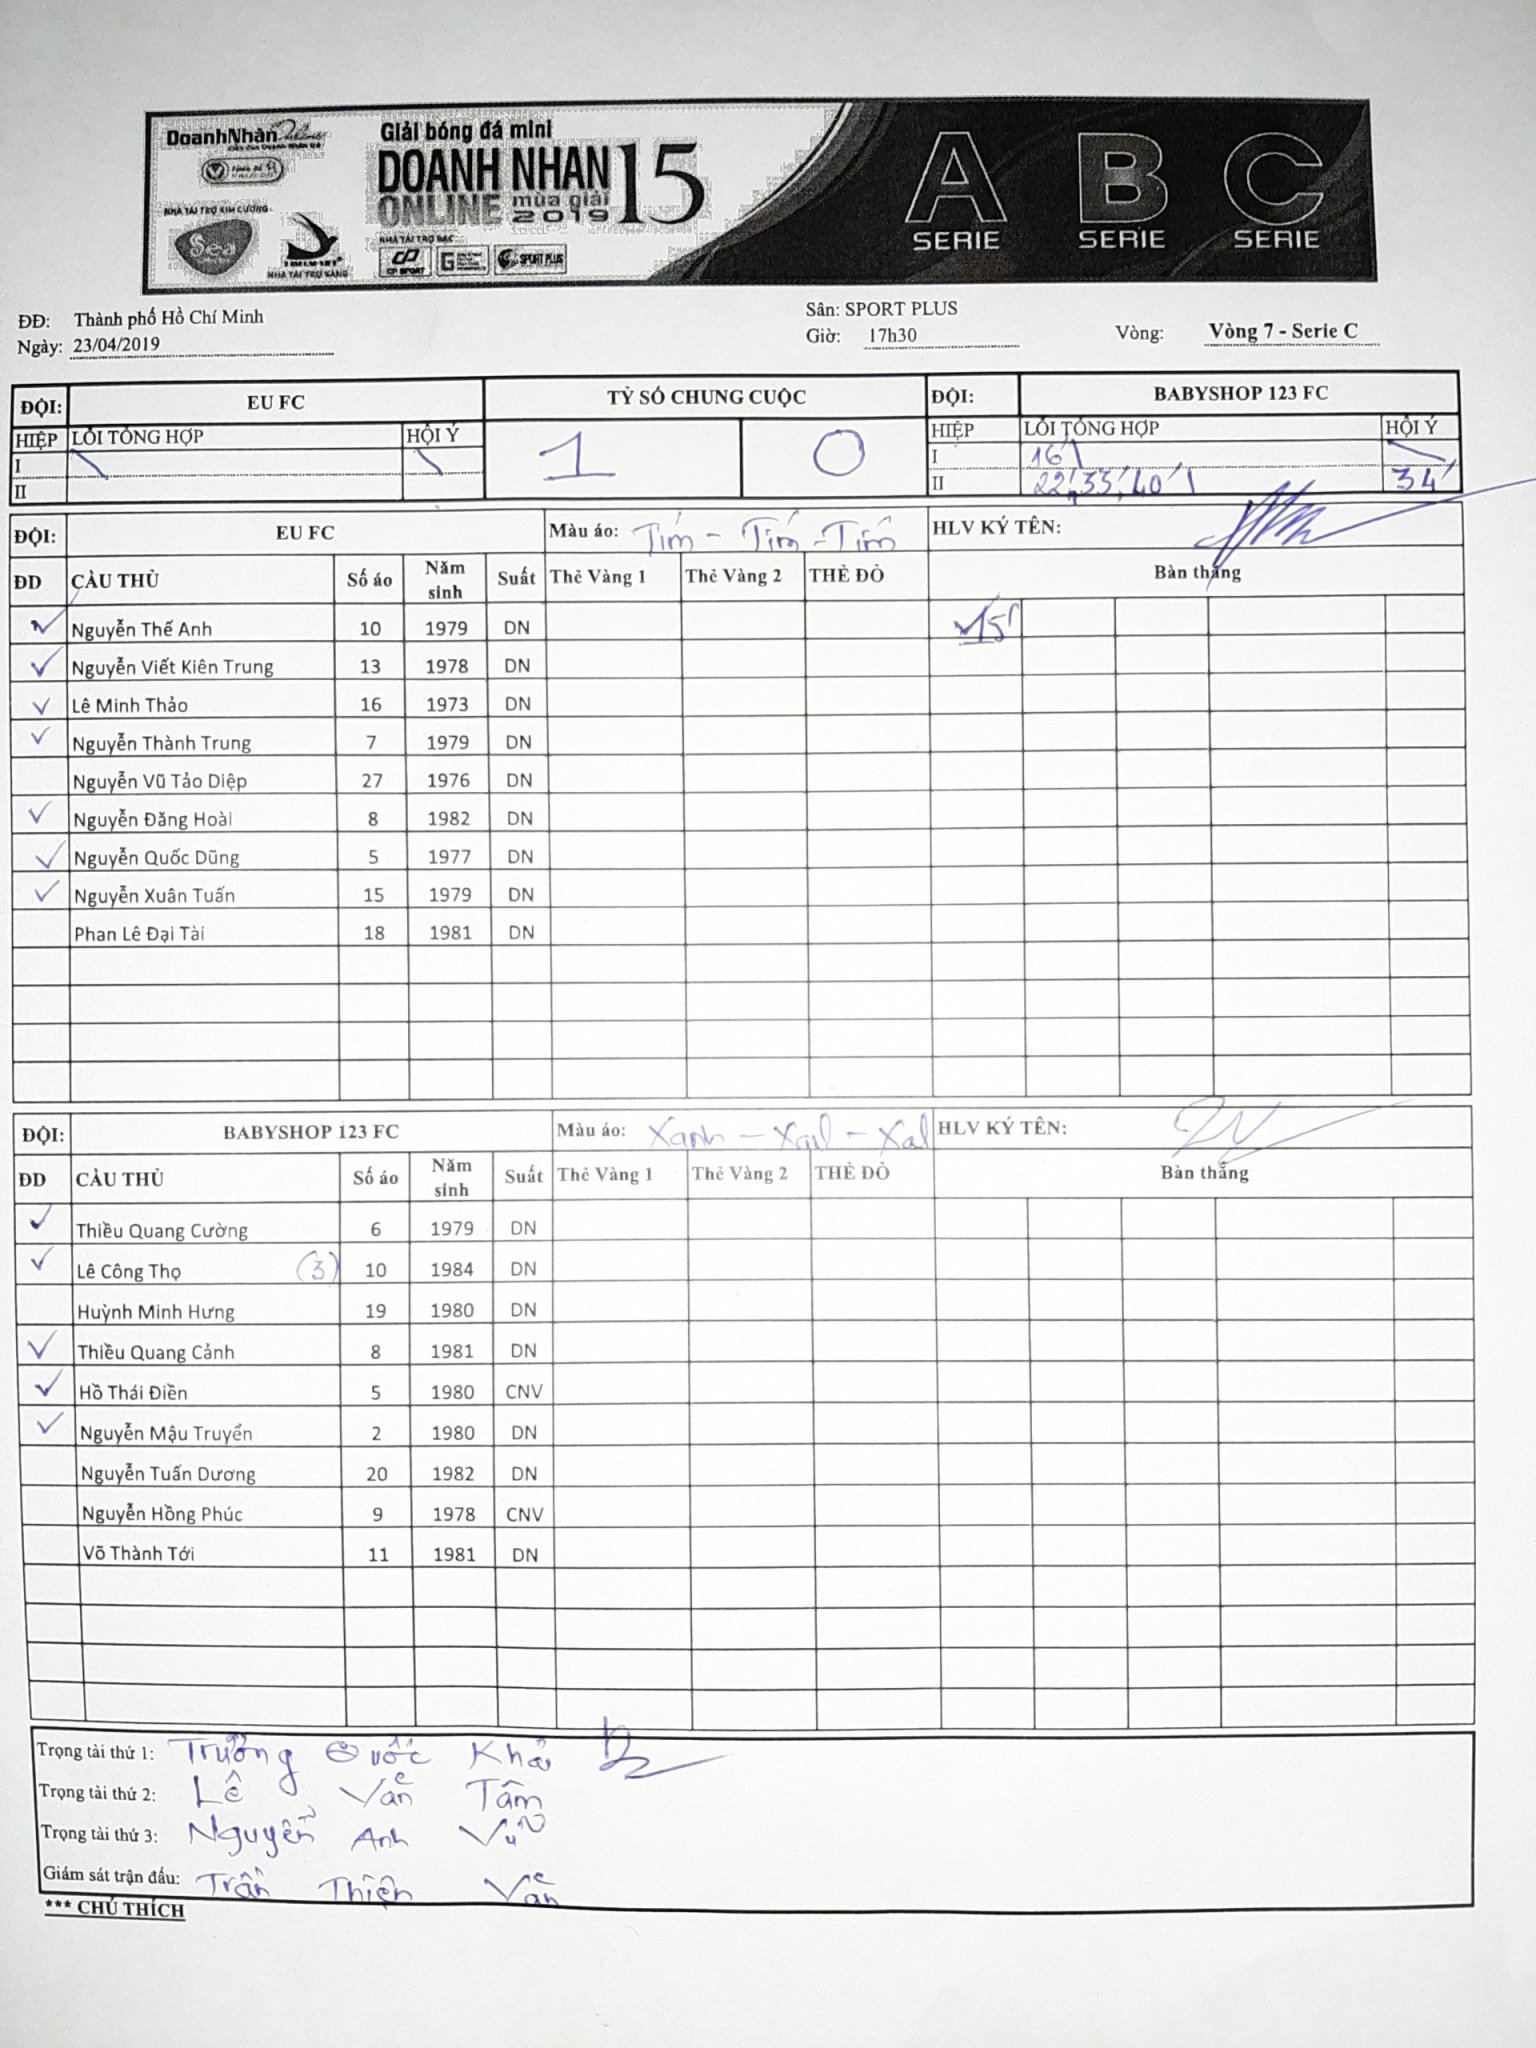 DoanhNhân
Giải bóng đá mini
DOANH NHAN 15
ONLINE mùa giải 2019
NHÀ TÀI TRỢ KIM CƯƠNG
Sea
NHÀ TÀI TRỢ VÀNG
NHÀ TÀI TRỢ BẠC
CP SPORT
SPORT PLUS
A B C
SERIE SERIE SERIE
ĐĐ: Thành phố Hồ Chí Minh Sân: SPORT PLUS
Ngày: 23/04/2019 Giờ: 17h30 Vòng: Vòng 7 - Serie C
ĐỘI: EU FC TỶ SỐ CHUNG CUỘC ĐỘI: BABYSHOP 123 FC
HIỆP LỖI TỔNG HỢP HỘI Ý 1 0 HIỆP LỖI TỔNG HỢP HỘI Ý
I I 16'
II II 22', 33', 40' 34'
ĐỘI: EU FC Màu áo: Tím - Tím - Tím HLV KÝ TÊN:
ĐD CẦU THỦ Số áo Năm sinh Suất Thẻ Vàng 1 Thẻ Vàng 2 THẺ ĐỎ Bàn thắng
Nguyễn Thế Anh 10 1979 DN 15'
Nguyễn Viết Kiên Trung 13 1978 DN
Lê Minh Thảo 16 1973 DN
Nguyễn Thành Trung 7 1979 DN
Nguyễn Vũ Tảo Diệp 27 1976 DN
Nguyễn Đăng Hoài 8 1982 DN
Nguyễn Quốc Dũng 5 1977 DN
Nguyễn Xuân Tuấn 15 1979 DN
Phan Lê Đại Tài 18 1981 DN
ĐỘI: BABYSHOP 123 FC Màu áo: Xanh - Xanh - Xanh HLV KÝ TÊN:
ĐD CẦU THỦ Số áo Năm sinh Suất Thẻ Vàng 1 Thẻ Vàng 2 THẺ ĐỎ Bàn thắng
Thiều Quang Cường 6 1979 DN
Lê Công Thọ (3) 10 1984 DN
Huỳnh Minh Hưng 19 1980 DN
Thiều Quang Cảnh 8 1981 DN
Hồ Thái Điền 5 1980 CNV
Nguyễn Mậu Truyển 2 1980 DN
Nguyễn Tuấn Dương 20 1982 DN
Nguyễn Hồng Phúc 9 1978 CNV
Võ Thành Tới 11 1981 DN
Trọng tài thứ 1: Trường Quốc Khải
Trọng tài thứ 2: Lê Văn Tâm
Trọng tài thứ 3: Nguyễn Anh Vũ
Giám sát trận đấu: Trần Thiện Văn
*** CHÚ THÍCH